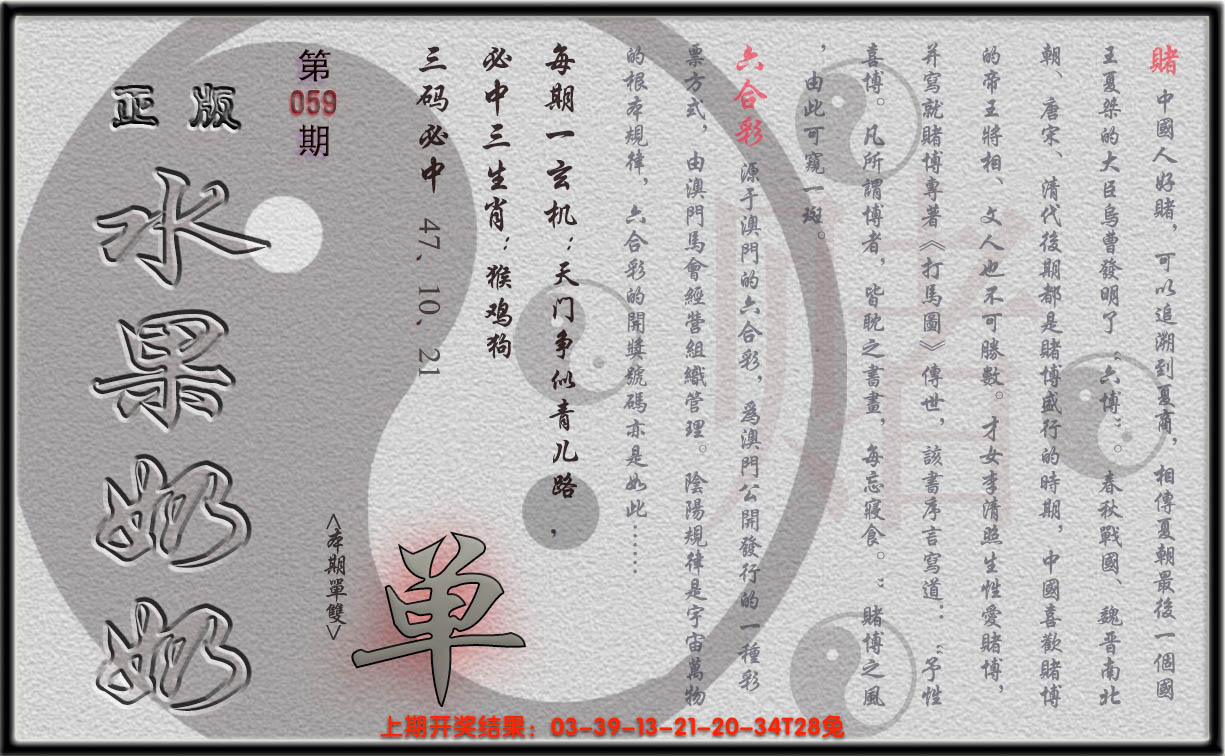 賭 中國人好賭，可以追溯到夏商，相傳夏朝最後一個國
王夏桀的大臣烏曹發明了“六博”。春秋戰國、魏晉南北
朝、唐宋、清代後期都是賭博盛行的時期，中國喜歡賭博
的帝王將相、文人也不可勝數。才女李清照生性愛賭博，
并寫就賭博專著《打馬圖》傳世，該書序言寫道：“予性
喜博。凡所謂博者，皆耽之書晝，每忘寢食。”賭博之風
，由此可窺一斑。
六合彩 源于澳門的六合彩，爲澳門公開發行的一種彩
票方式，由澳門馬會經營組織管理。陰陽規律是宇宙萬物
的根本規律，六合彩的開獎號碼亦是如此……
每期一玄机：天门争似青儿路，
必中三生肖：猴鸡狗
三码必中 47、10、21
第059期
<本期單雙>
单
正版
水果奶奶
上期开奖结果：03-39-13-21-20-34T28兔